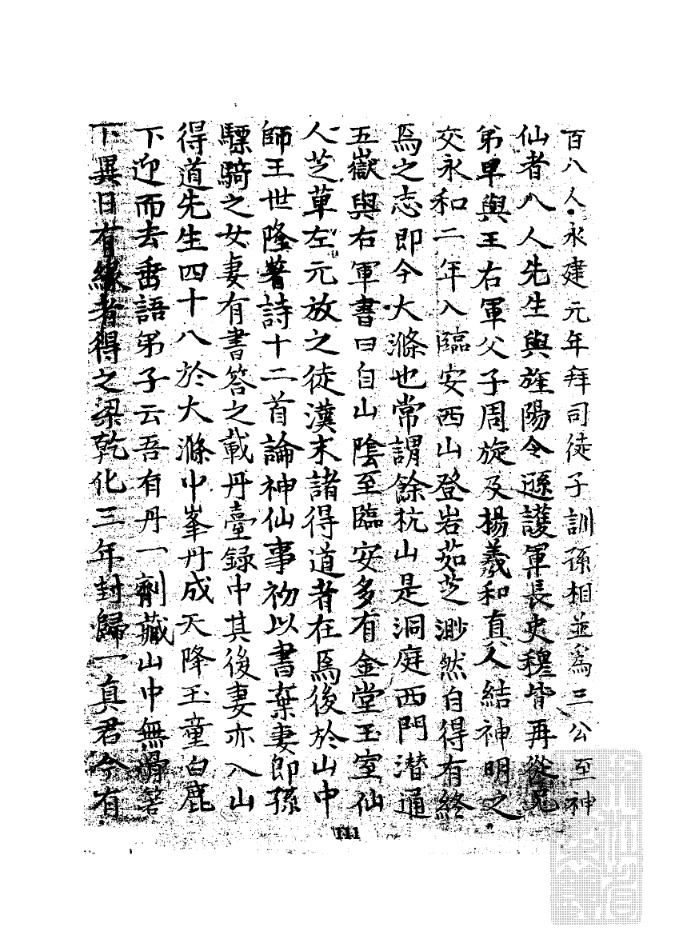 百八人永建元年拜司徒子訓孫相並為三公至神
仙者八人先生與旌陽令遜護軍長史穆皆再從兄
弟早與王右軍父子周旋及楊羲和真人結神明之
交永和二年入臨安西山登岩茹芝渺然自得有終
焉之志即今大滌也常謂餘杭山是洞庭西門潛通
五嶽與右軍書曰自山陰至臨安多有金堂玉室仙
人芝草左元放之徒漢末諸得道者在焉後於山中
師王世隆著詩十二首論神仙事初以書棄妻即孫
驃騎之女妻有書答之載丹臺錄中其後妻亦入山
得道先生四十八於大滌中峯丹成天降玉童白鹿
下迎而去垂語弟子云吾有丹一劑藏山中無
下異日有緣者得之梁乾化三年封歸一真君今有
111